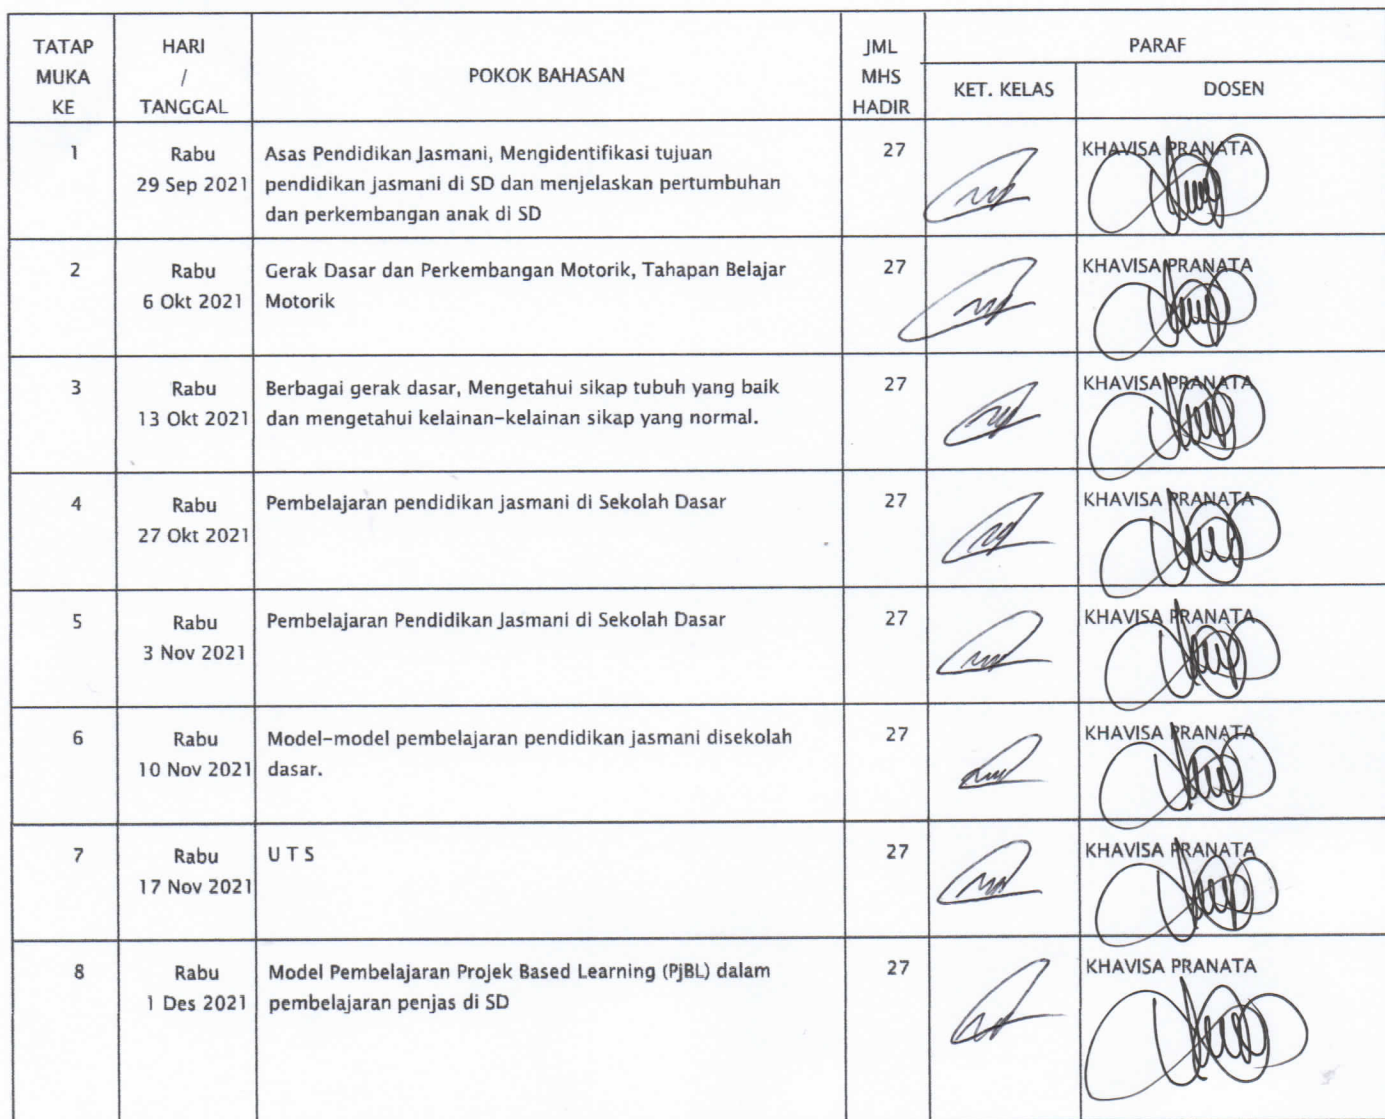 TATAP MUKA KE
HARI / TANGGAL
POKOK BAHASAN
JML MHS HADIR
PARAF
KET. KELAS
DOSEN
1
Rabu
29 Sep 2021
Asas Pendidikan Jasmani, Mengidentifikasi tujuan
pendidikan jasmani di SD dan menjelaskan pertumbuhan
dan perkembangan anak di SD
27
KHAVISA PRANATA
2
Rabu
6 Okt 2021
Gerak Dasar dan Perkembangan Motorik, Tahapan Belajar
Motorik
27
KHAVISA PRANATA
3
Rabu
13 Okt 2021
Berbagai gerak dasar, Mengetahui sikap tubuh yang baik
dan mengetahui kelainan-kelainan sikap yang normal.
27
KHAVISA PRANATA
4
Rabu
27 Okt 2021
Pembelajaran pendidikan jasmani di Sekolah Dasar
27
KHAVISA PRANATA
5
Rabu
3 Nov 2021
Pembelajaran Pendidikan Jasmani di Sekolah Dasar
27
KHAVISA PRANATA
6
Rabu
10 Nov 2021
Model-model pembelajaran pendidikan jasmani disekolah
dasar.
27
KHAVISA PRANATA
7
Rabu
17 Nov 2021
U T S
27
KHAVISA PRANATA
8
Rabu
1 Des 2021
Model Pembelajaran Projek Based Learning (PjBL) dalam
pembelajaran penjas di SD
27
KHAVISA PRANATA